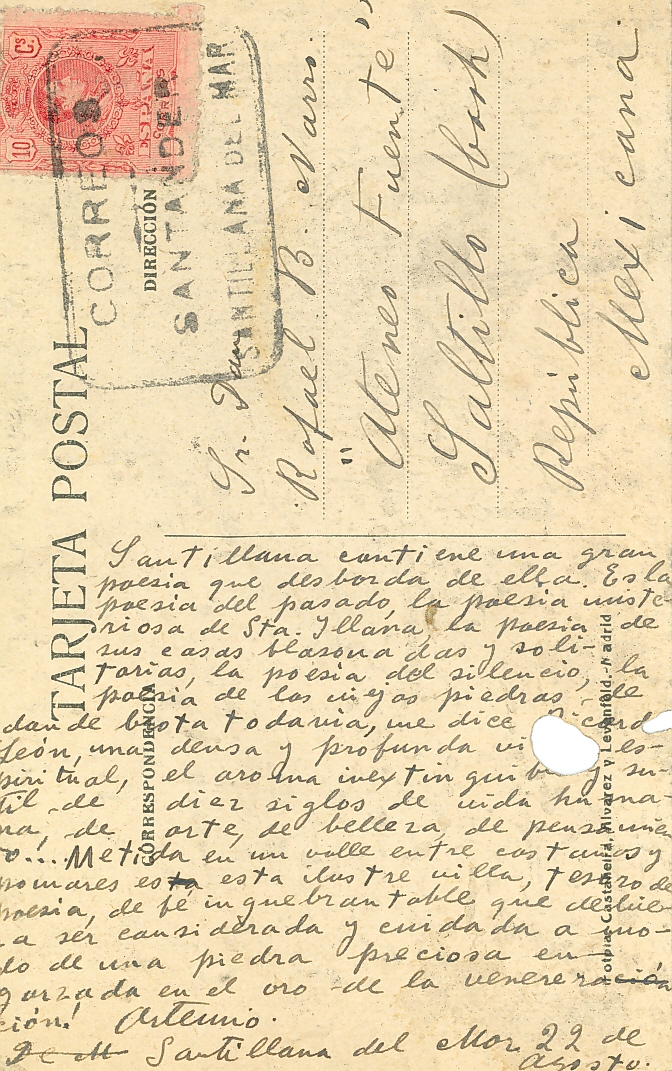 TARJETA POSTAL
DIRECCIÓN
CORREOS
SANTANDER
SANTILLANA DEL MAR
10 Cs
ESPAÑA
CORREOS
Sr. Dn
Rafael B. Narro.
"Ateneo Fuente"
Saltillo (Coah)
República
Mexicana
CORRESPONDENCIA
Santillana contiene una gran
poesia que desborda de ella. Es la
poesia del pasado, la poesia miste-
riosa de Sta. Illana, la poesia de
sus casas blasonadas y soli-
tarias, la poesia del silencio, la
poesia de las viejas piedras, de
donde brota todavia, me dice
León, una densa y profunda es-
piritual, el aroma inextingui y su-
til de diez siglos de vida huma-
na, de arte, de belleza, de pensamie
o... Metida en un valle entre castaños y
pomares esta esta ilustre villa, tesoro de
poesia, de fé inquebrantable que debie-
a ser considerada y cuidada a mo-
do de una piedra preciosa en-
garzada en el oro de la veneración
ción! Artemio.
De M Santillana del Mar 22 de
agosto.
Fotpia: Castañeira, Alvarez y Levenfeld.-Madrid